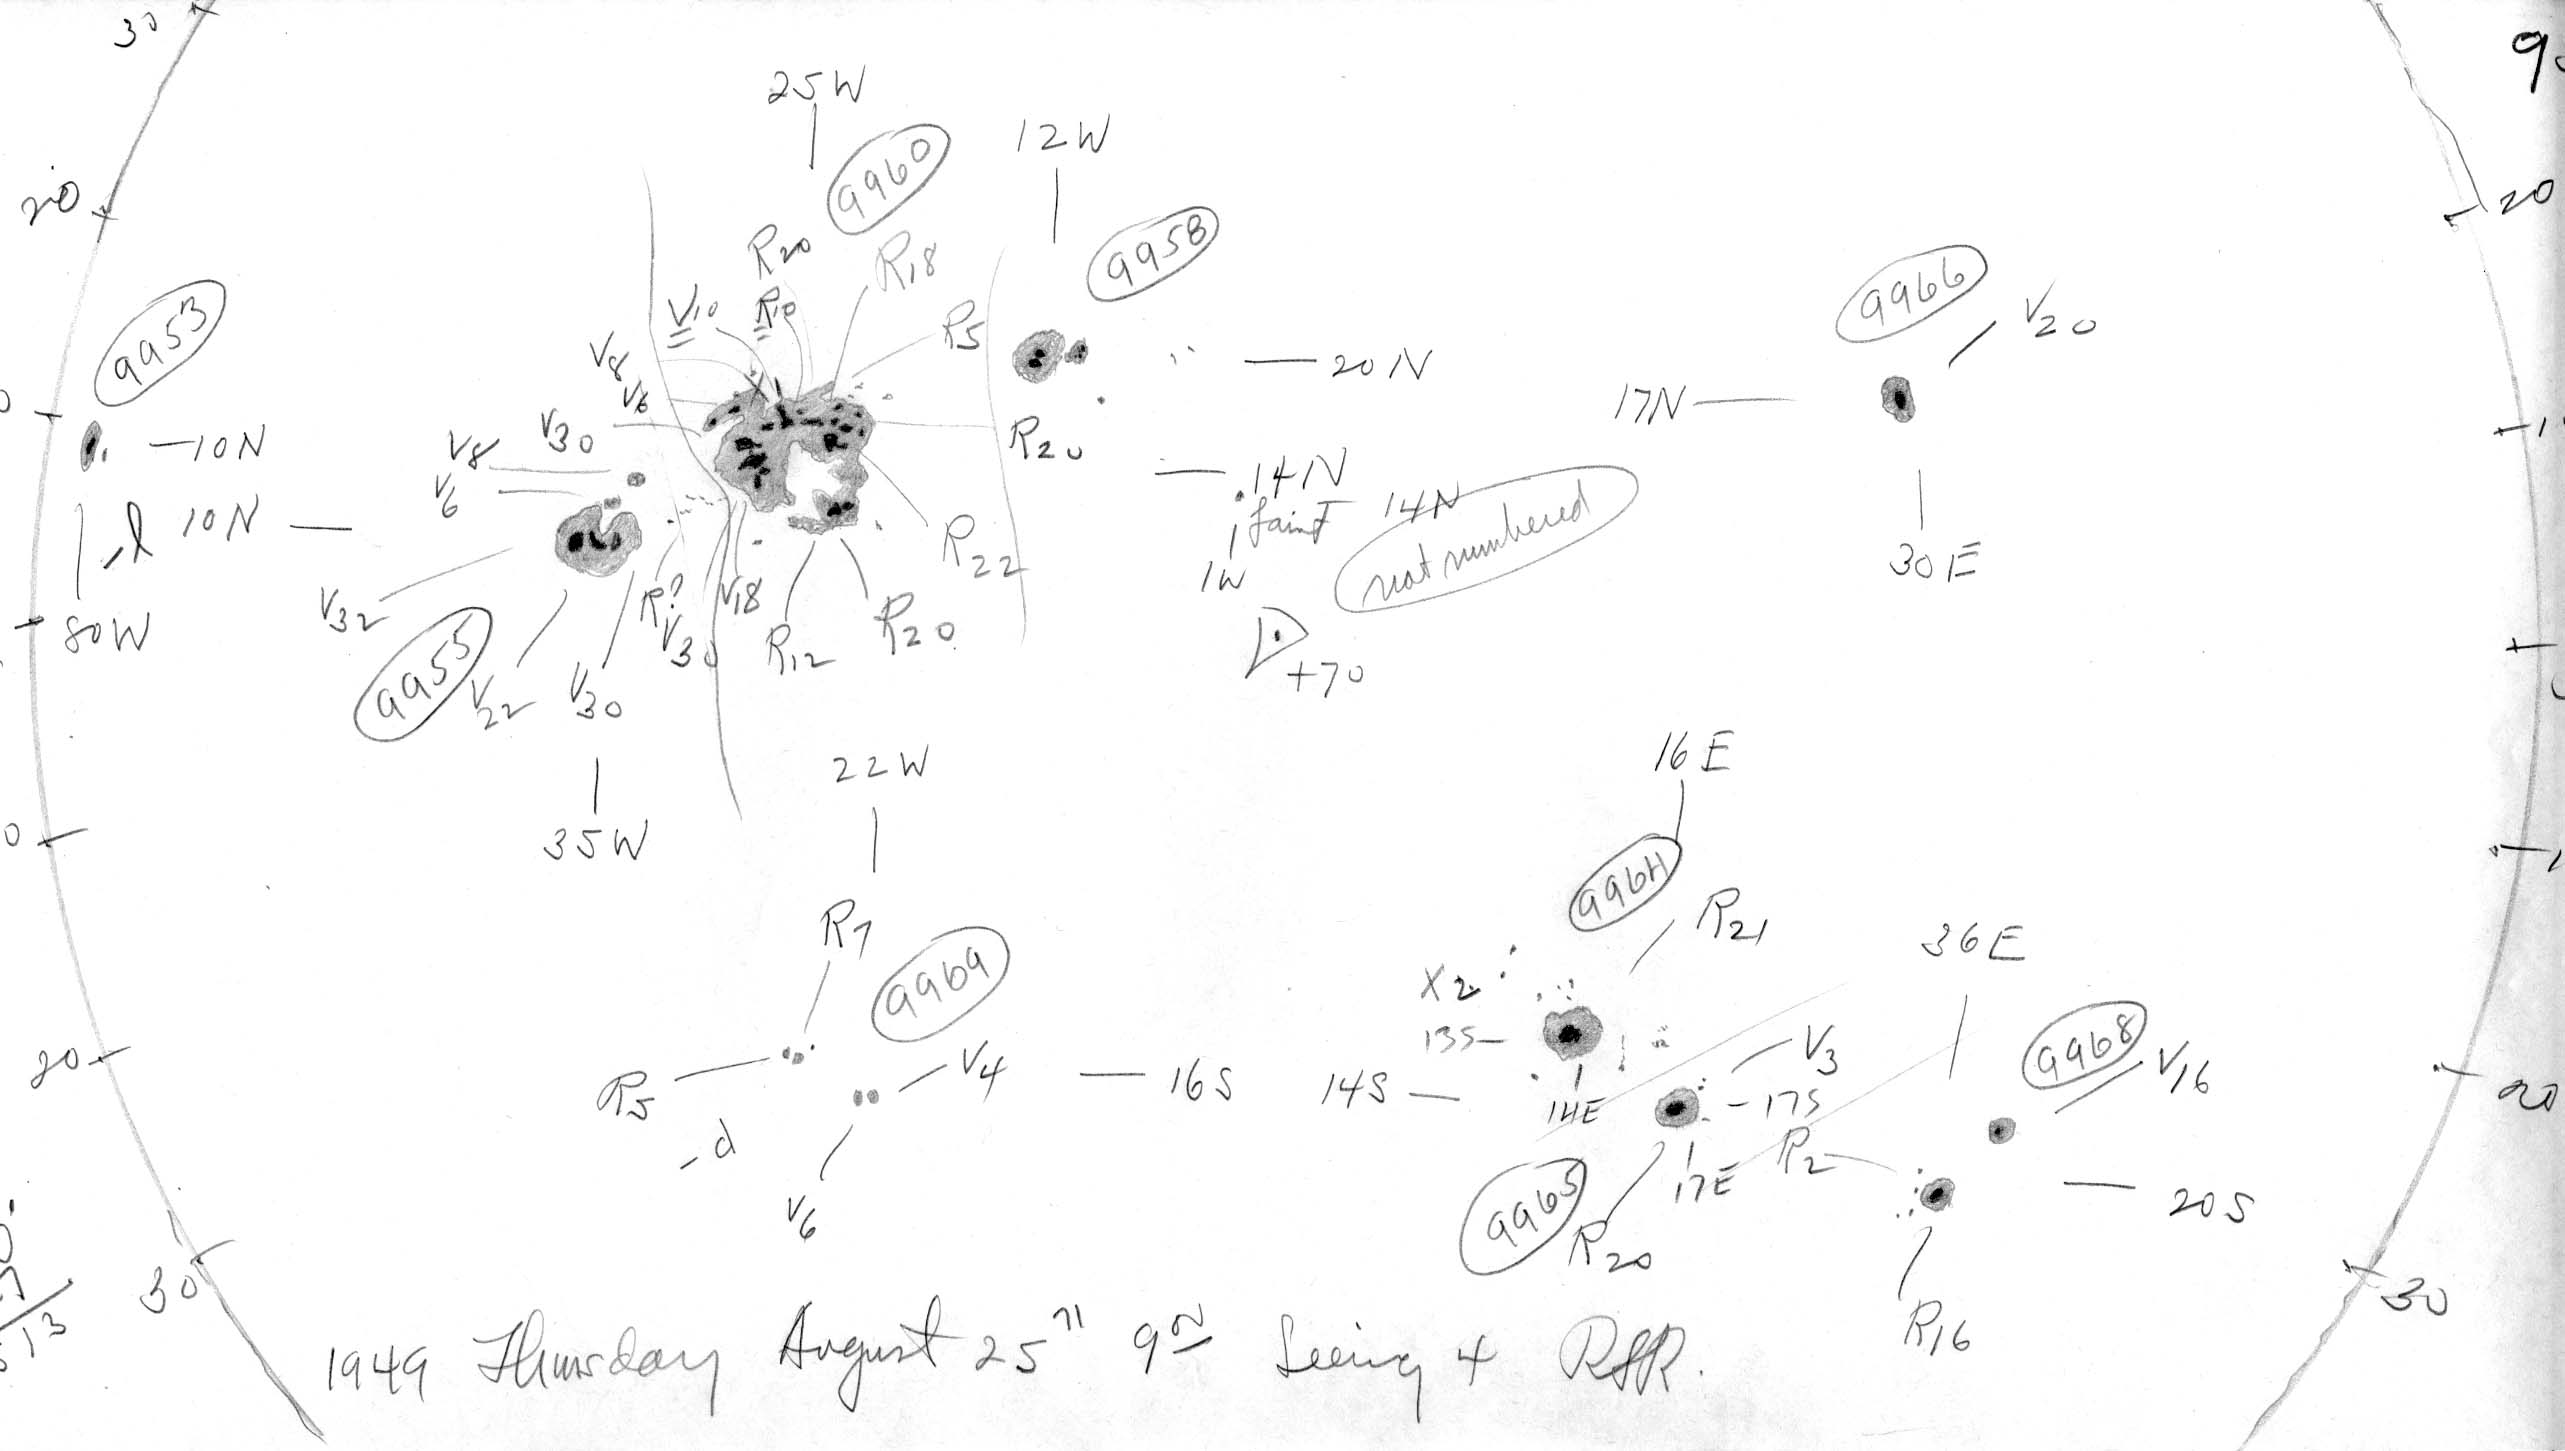 30
25W
9960
12W
20
20
R20
R18
9958
9953
V10
R10
R5
9966
V20
V8
V6
20N
17N
V30
R20
10N
V8
V6
14N
faint
14N
not numbered
10N
-l
R22
30E
1W
V32
R?
V18
V30
R12
R20
80W
+70
9955
V22
V30
22W
16E
35W
0
9964
R7
R21
36E
9969
X2
13S
9968
V16
V3
20
R5
V4
16S
14S
14E
17S
20
-d
R2
17E
20S
V6
9965
R20
30
30
R16
13
1949 Thursday August 25th 9 Seeing 4 RSR.